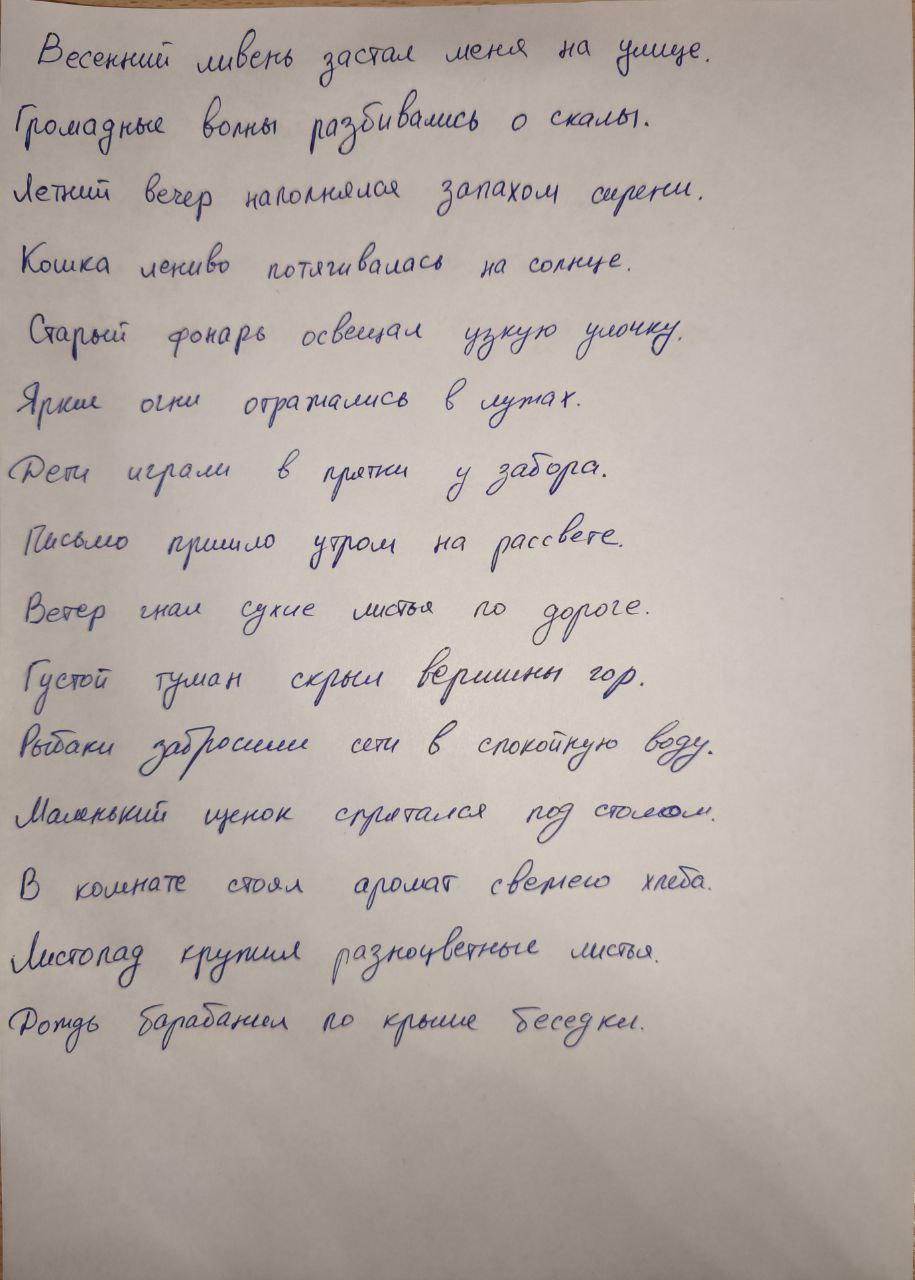 Весенний ливень застал меня на улице.
Громадные волны разбивались о скалы.
Летний вечер наполнялся запахом сирени.
Кошка лениво потягивалась на солнце.
Старый фонарь освещал узкую улочку.
Яркие огни отражались в лужах.
Дети играли в прятки у забора.
Письмо пришло утром на рассвете.
Ветер гнал сухие листья по дороге.
Густой туман скрыл вершины гор.
Рыбаки забросили сети в спокойную воду.
Маленький щенок спрятался под столом.
В комнате стоял аромат свежего хлеба.
Листопад кружил разноцветные листья.
Дождь барабанил по крыше беседки.